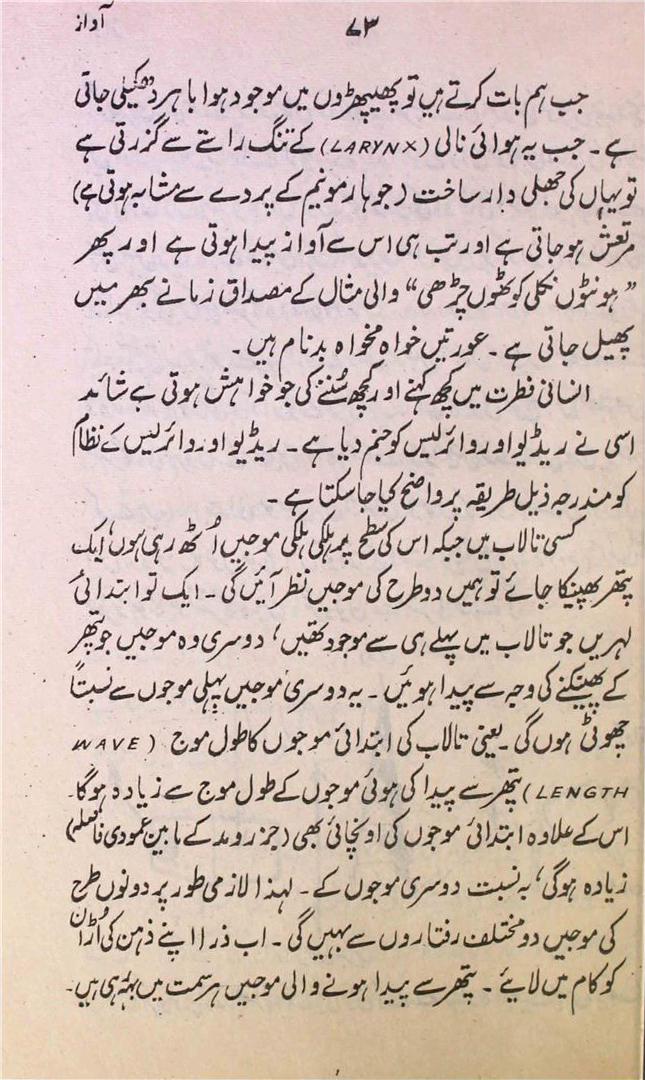 آواز
۷۳
جب ہم بات کرتے ہیں تو پھیپھڑوں میں موجود ہوا باہر دھکیلی جاتی
ہے۔ جب یہ ہوائی نالی (LARYNX) کے تنگ راستے سے گزرتی ہے
تو یہاں کی جھلی دار ساخت (جو ہارمونیم کے پردے سے مشابہ ہوتی ہے)
مرتعش ہو جاتی ہے اور تب ہی اس سے آواز پیدا ہوتی ہے اور پھر
”ہونٹوں نکلی کوٹھوں چڑھی“ والی مثال کے مصداق زمانے بھر میں
پھیل جاتی ہے۔ عورتیں خواہ مخواہ بدنام ہیں۔
انسانی فطرت میں کچھ کہنے اور کچھ سُننے کی جو خواہش ہوتی ہے شائد
اسی نے ریڈیو اور وائرلیس کو جنم دیا ہے۔ ریڈیو اور وائرلیس کے نظام
کو مندرجہ ذیل طریقہ پر واضح کیا جا سکتا ہے۔
کسی تالاب میں جبکہ اس کی سطح پر ہلکی ہلکی موجیں اُٹھ رہی ہوں، ایک
پتھر پھینکا جائے تو ہمیں دو طرح کی موجیں نظر آئیں گی۔ ایک تو ابتدائی
لہریں جو تالاب میں پہلے ہی سے موجود تھیں، دوسری وہ موجیں جو پتھر
کے پھینکنے کی وجہ سے پیدا ہوئیں۔ یہ دوسری موجیں پہلی موجوں سے نسبتاً
چھوٹی ہوں گی۔ یعنی تالاب کی ابتدائی موجوں کا طول موج (WAVE
LENGTH) پتھر سے پیدا کی ہوئی موجوں کے طول موج سے زیادہ ہوگا۔
اس کے علاوہ ابتدائی موجوں کی اونچائی بھی (جزر و مد کے مابین عمودی فاصلہ)
زیادہ ہوگی، بہ نسبت دوسری موجوں کے۔ لہٰذا لازمی طور پر دونوں طرح
کی موجیں دو مختلف رفتاروں سے بہیں گی۔ اب ذرا اپنے ذہن کی اُڑان
کو کام میں لایئے۔ پتھر سے پیدا ہونے والی موجیں ہر سمت میں بہ رہی ہیں۔